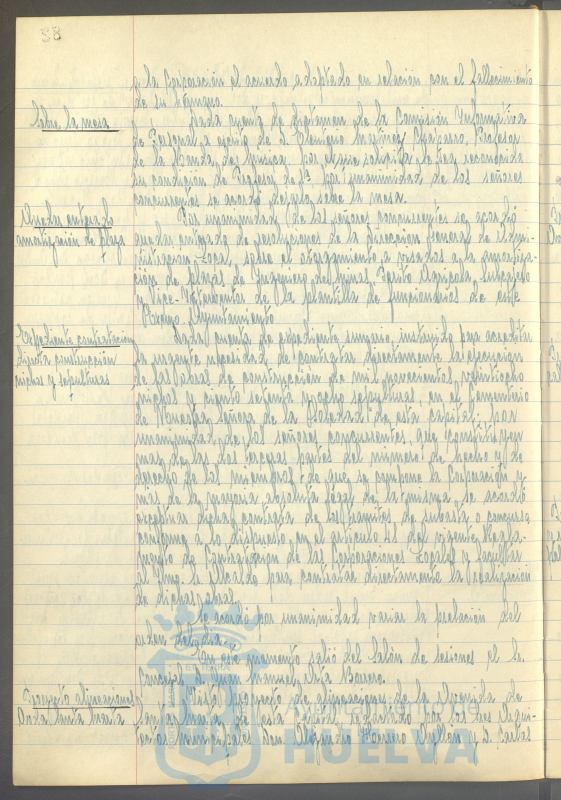 58
a la Corporación el acuerdo adoptado en relación con el fallecimiento
de su
Sobre la mesa
Dada cuenta de dictamen de la Comisión Informativa
de Personal, a escrito de D. Martínez Chaparro, Profesor
de la Banda de Música, por el que solicita le sea reconocida
su condición de Profesor de 1ª, por unanimidad de los señores
concurrentes se acordó dejarlo sobre la mesa.
Queda enterado
amortización de plaza
Por unanimidad de los señores concurrentes se acordó
quedar enterado de resoluciones de la Dirección General de Admi-
nistración Local, sobre el otorgamiento a visados a la amortiza-
ción de plazas de Ingeniero de Minas, Perito Agrícola,
y Vice-Interventor de la plantilla de funcionarios de este
Excmo. Ayuntamiento.
Expediente contratación
directa construcción
nichos y sepulturas
Dada cuenta de expediente sumario, instruido para acreditar
la urgente necesidad de contratar directamente la ejecución
de las obras de construcción de mil novecientos veintiocho
nichos y ciento setenta y ocho sepulturas, en el Cementerio
de Nuestra Señora de la Soledad de esta capital, por
unanimidad de los señores concurrentes, que constituyen
mas de las dos terceras partes del número de hecho y de
derecho de los miembros de que se compone la Corporación y
mas de la mayoria absoluta legal de la misma, se acordó
exceptuar dicha contrata de los trámites de subasta o concurso
conforme a lo dispuesto en el artículo 41 del vigente Regla-
mento de Contratación de las Corporaciones Locales y facultar
al Iltmo. Sr. Alcalde para contratar directamente la realización
de dichas obras.
Se acordó por unanimidad variar la prelación del
orden del día.
En este momento salió del Salón de sesiones el Sr.
Concejal D. Juan Manuel Borrero.
Proyecto alineaciones
Avda. Santa Marta
Visto proyecto de alineaciones de la Avenida de
Santa Marta de esta capital, redactado por los Sres. Arqui-
tectos Municipales don Alejandro Herrero Ayllón y D. Carlos
Ayuntamiento de
HUELVA